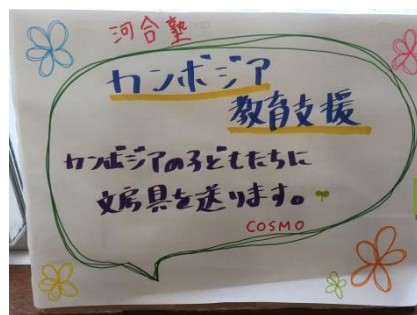 河合塾
カンボジア
教育支援
カンボジアの子どもたちに
文房具を送ります。
COSMO